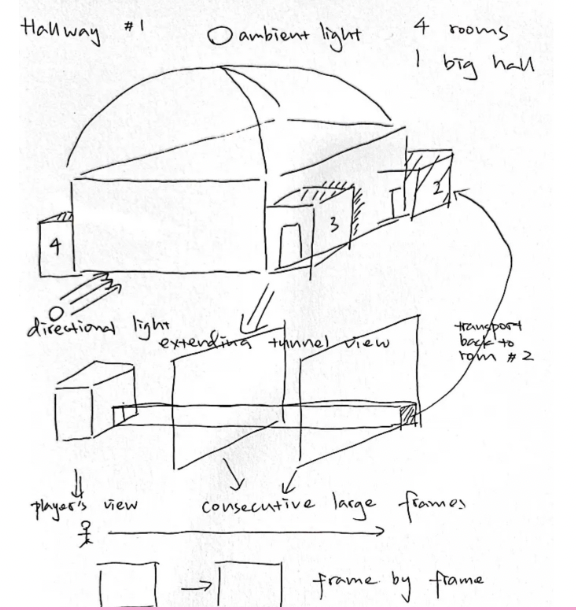 Hallway #1
ambient light
4 rooms
1 big hall
2
3
4
directional light
extending tunnel view
transport
back to
room #2
player's view
consecutive large frames
frame by frame